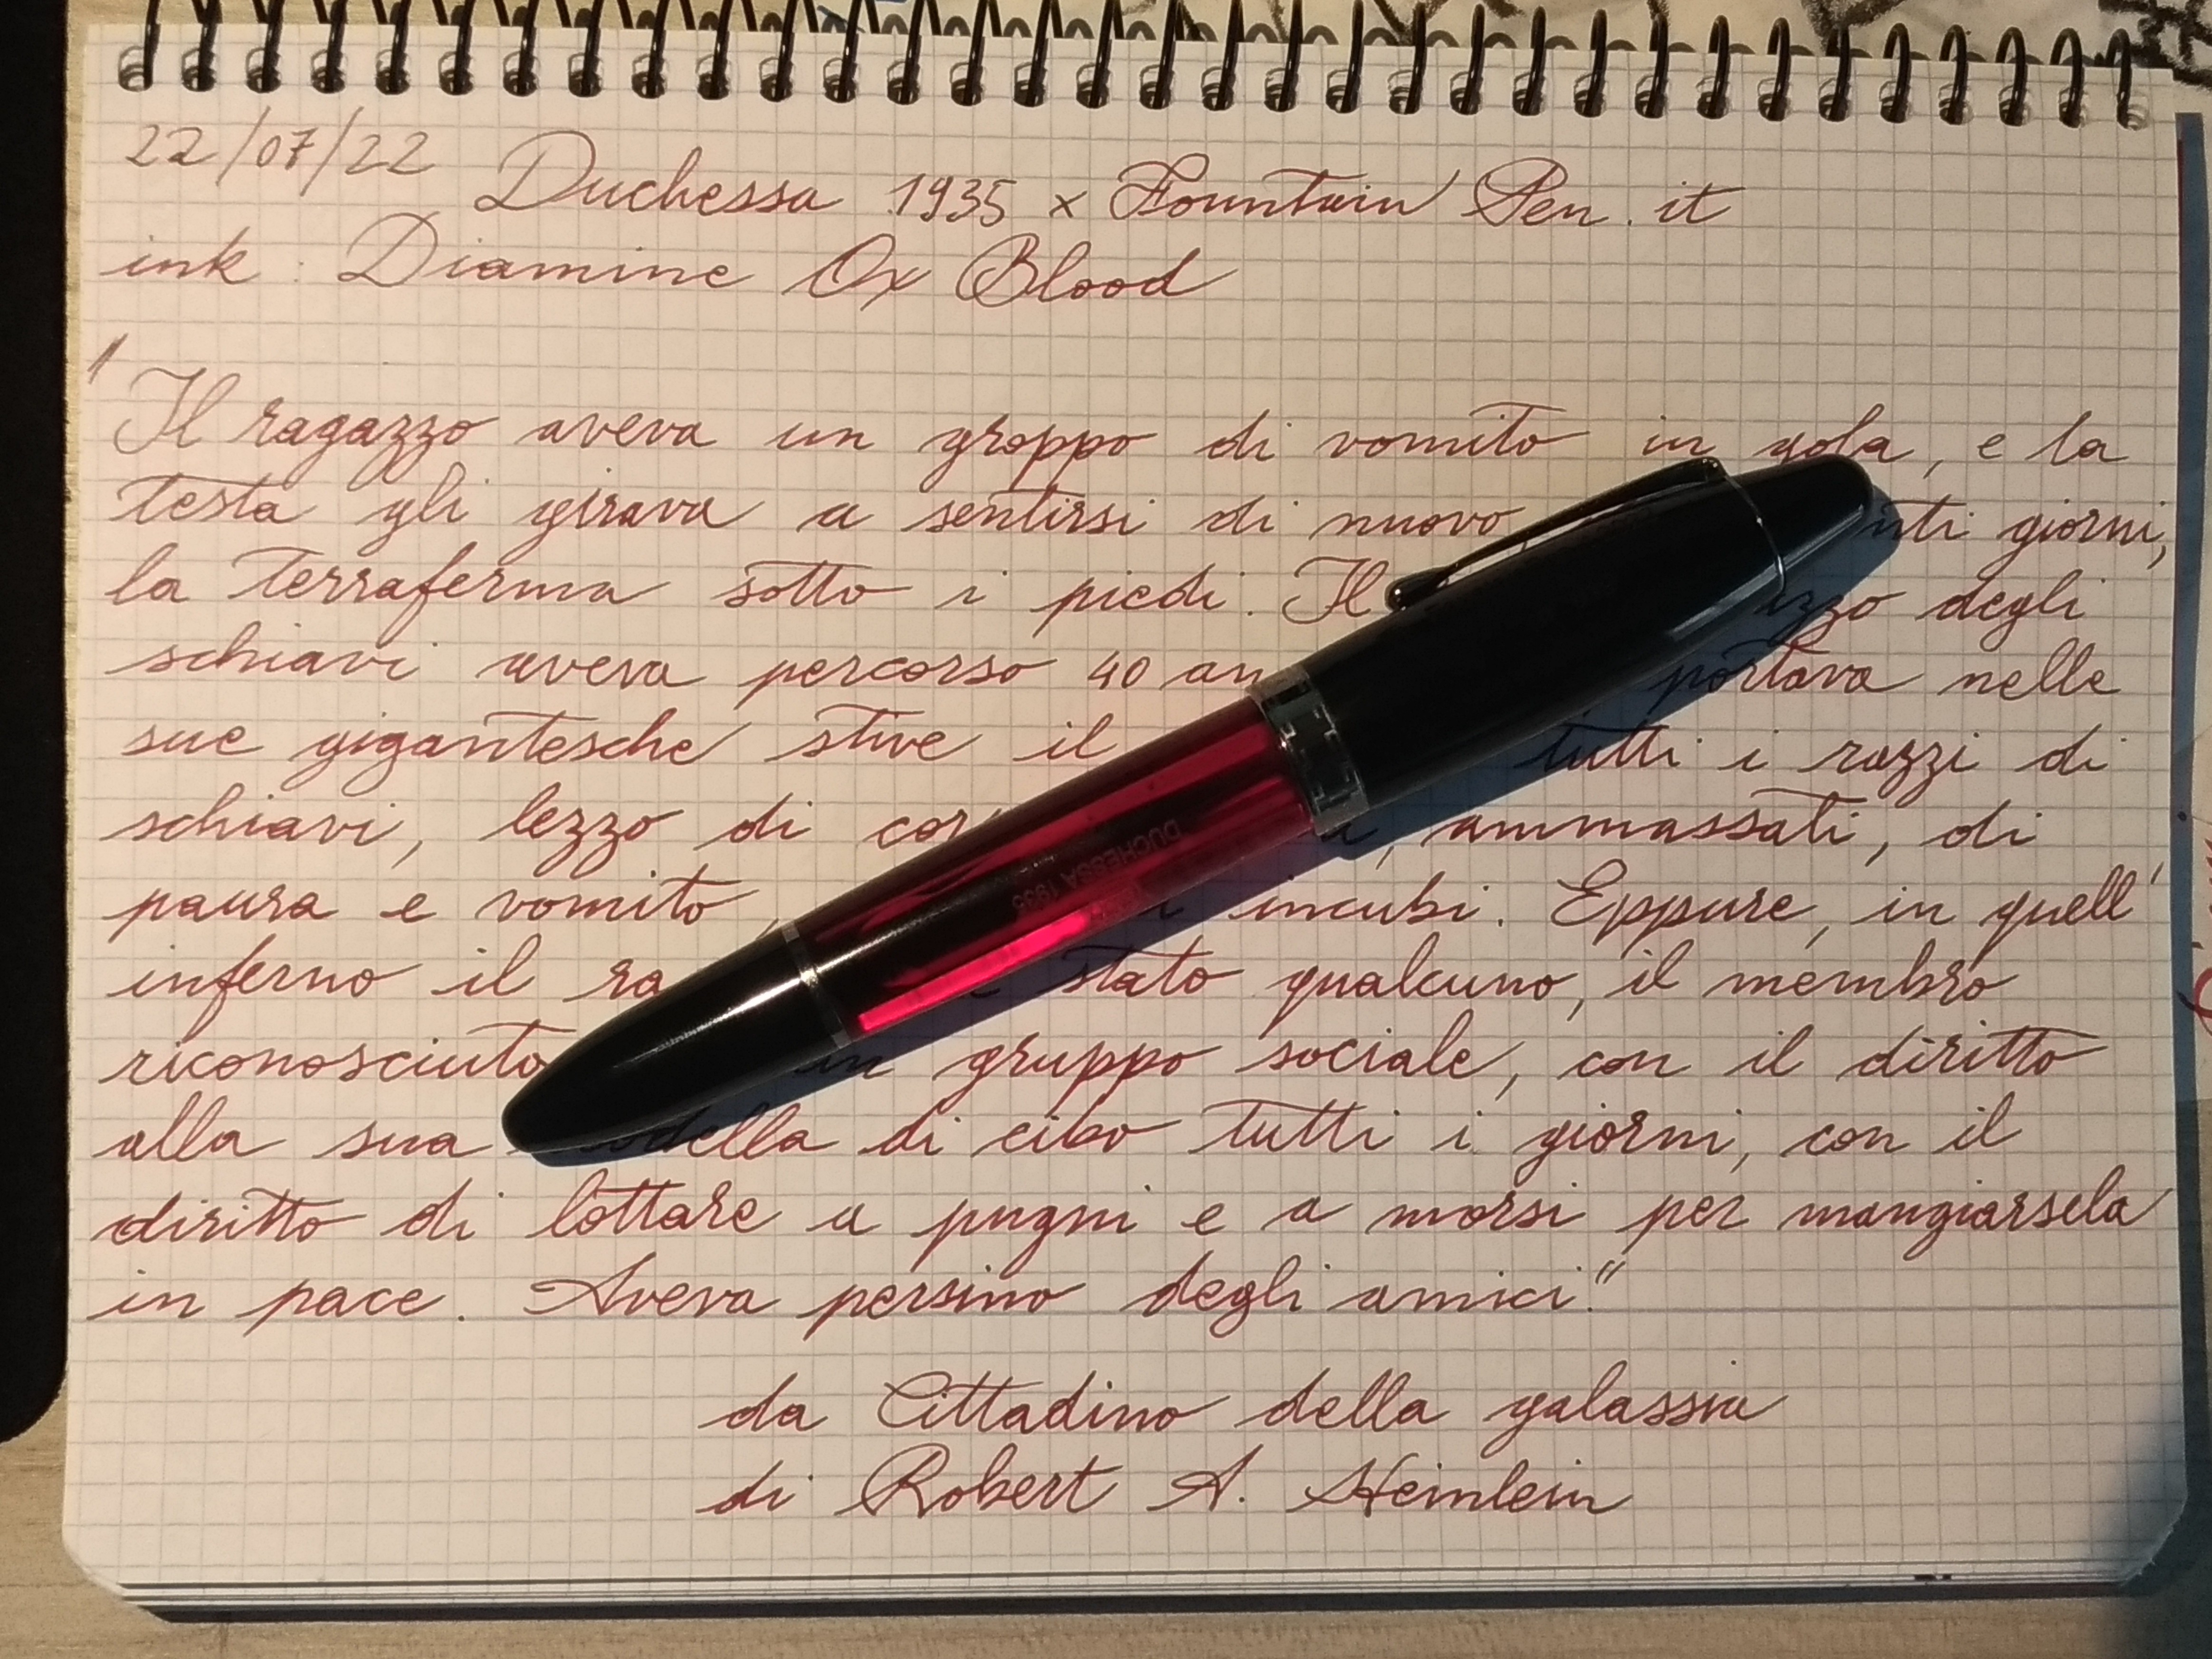 22/07/22
Duchessa 1935 x Fountain Pen.it
ink: Diamine Ox Blood
"Il ragazzo aveva un groppo di vomito in gola, e la
testa gli girava a sentirsi di nuovo, giorni,
la terraferma sotto i piedi. Il degli
schiavi aveva percorso 40 portava nelle
sue gigantesche stive il tutti i razzi di
schiavi, lezzo di ammassati, di
paura e vomito, incubi. Eppure, in quell'
inferno il stato qualcuno, il membro
riconosciuto gruppo sociale, con il diritto
alla sua di cibo tutti i giorni, con il
diritto di lottare a pugni e a morsi per mangiarsela
in pace. Aveva persino degli amici."
DUCHESSA 1935
da Cittadino della galassia
di Robert A. Heinlein